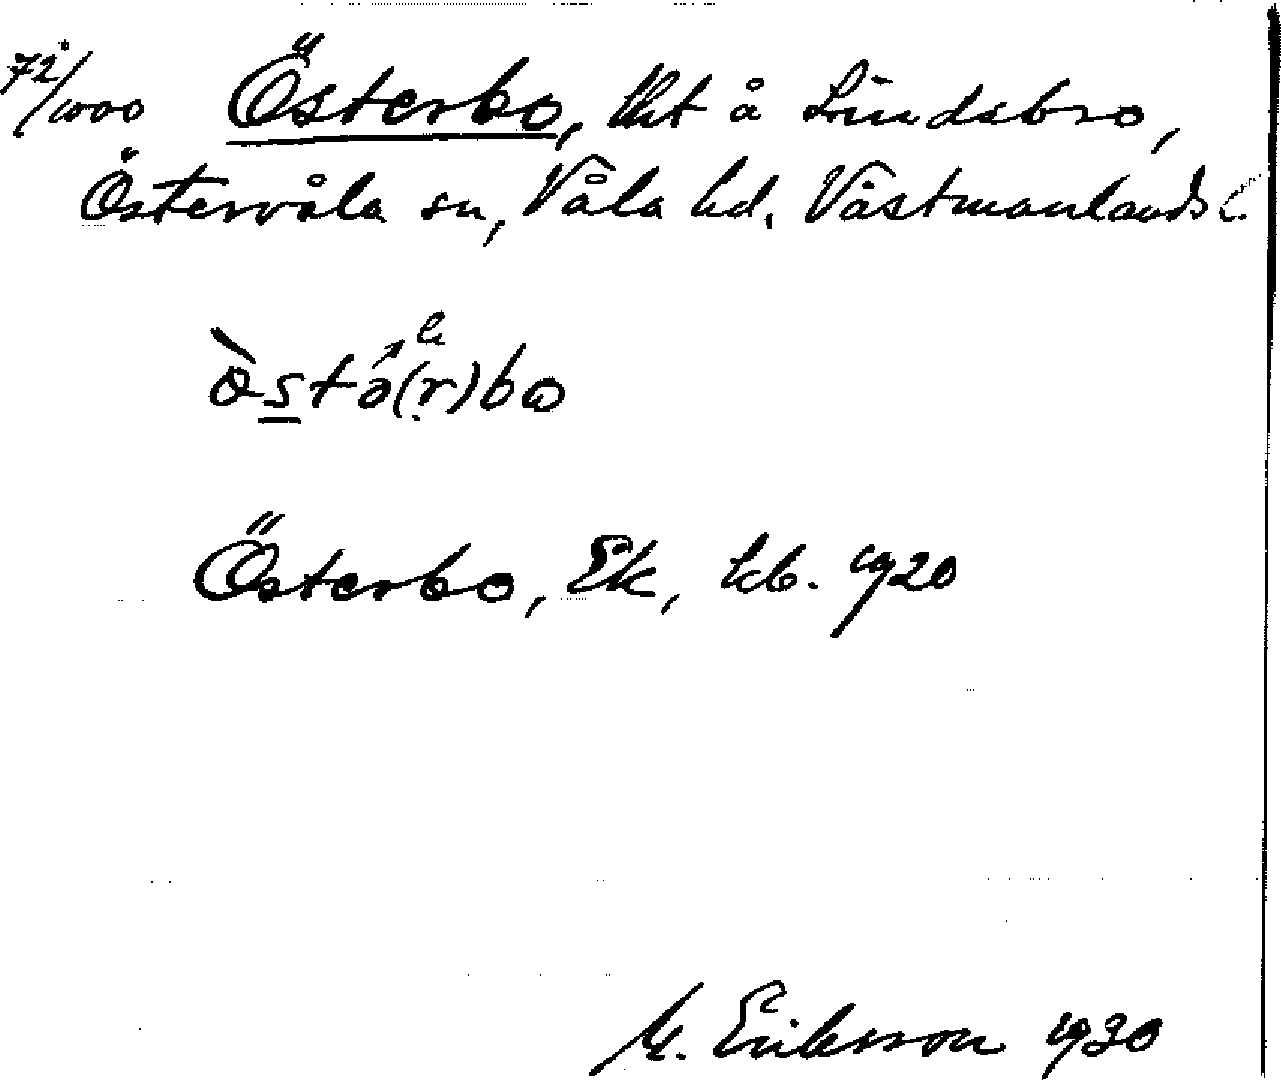 72/1000 Österbo, lht å Lindsbro,
Östervåla sn, Våla hd. Västmanlands l.
Österbo, Ek, kb. 1920
M. Eriksson 1930